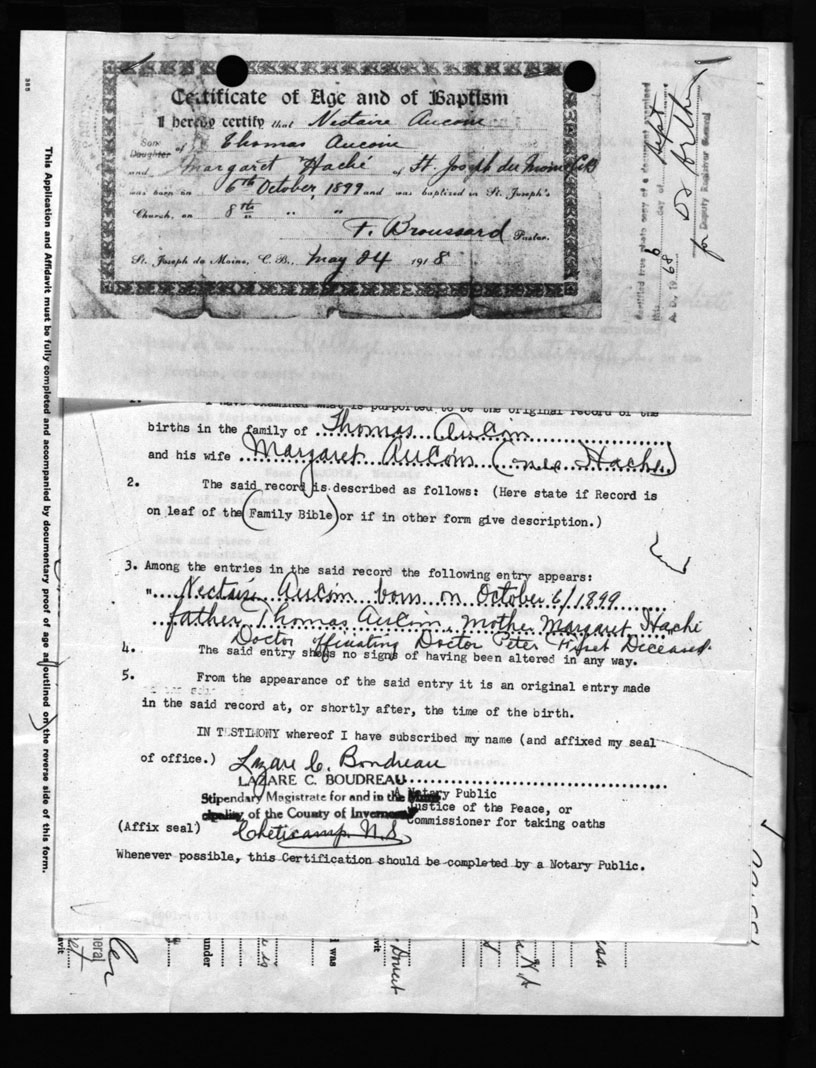 Certificate of Age and of Baptism
I hereby certify that Nectaire Aucoin
Son
Daughter of Thomas Aucoin
and Margaret Haché of St. Joseph du Moine C.B.
was born on 6th October, 1899 and was baptized in St. Joseph's
Church, on 8th " "
F. Broussard Pastor.
St. Joseph du Moine, C. B., May 24 1918
Certified true photo copy of a document
this 6 day of Sept
A. D. 1968
for Deputy Registrar General
This Application and Affidavit must be fully completed and accompanied by documentary proof of age as outlined on the reverse side of this form.
I have examined what is purported to be the original record of the
births in the family of Thomas AuCoin
and his wife Margaret AuCoin (nee Hache)
2. The said record is described as follows: (Here state if Record is
on leaf of the Family Bible or if in other form give description.)
3. Among the entries in the said record the following entry appears:
"Nectaire AuCoin born on October 6/1899
father, Thomas AuCoin, mother Margaret Haché"
Doctor officiating Doctor Peter Fiset Deceased.
4. The said entry shows no signs of having been altered in any way.
5. From the appearance of the said entry it is an original entry made
in the said record at, or shortly after, the time of the birth.
IN TESTIMONY whereof I have subscribed my name (and affixed my seal
of office.) Lazare C. Boudreau
LAZARE C. BOUDREAU
A Notary Public
Stipendary Magistrate for and in the
Justice of the Peace, or
of the County of Inverness
Commissioner for taking oaths
(Affix seal) Cheticamp N.S.
Whenever possible, this Certification should be completed by a Notary Public.
under
I was